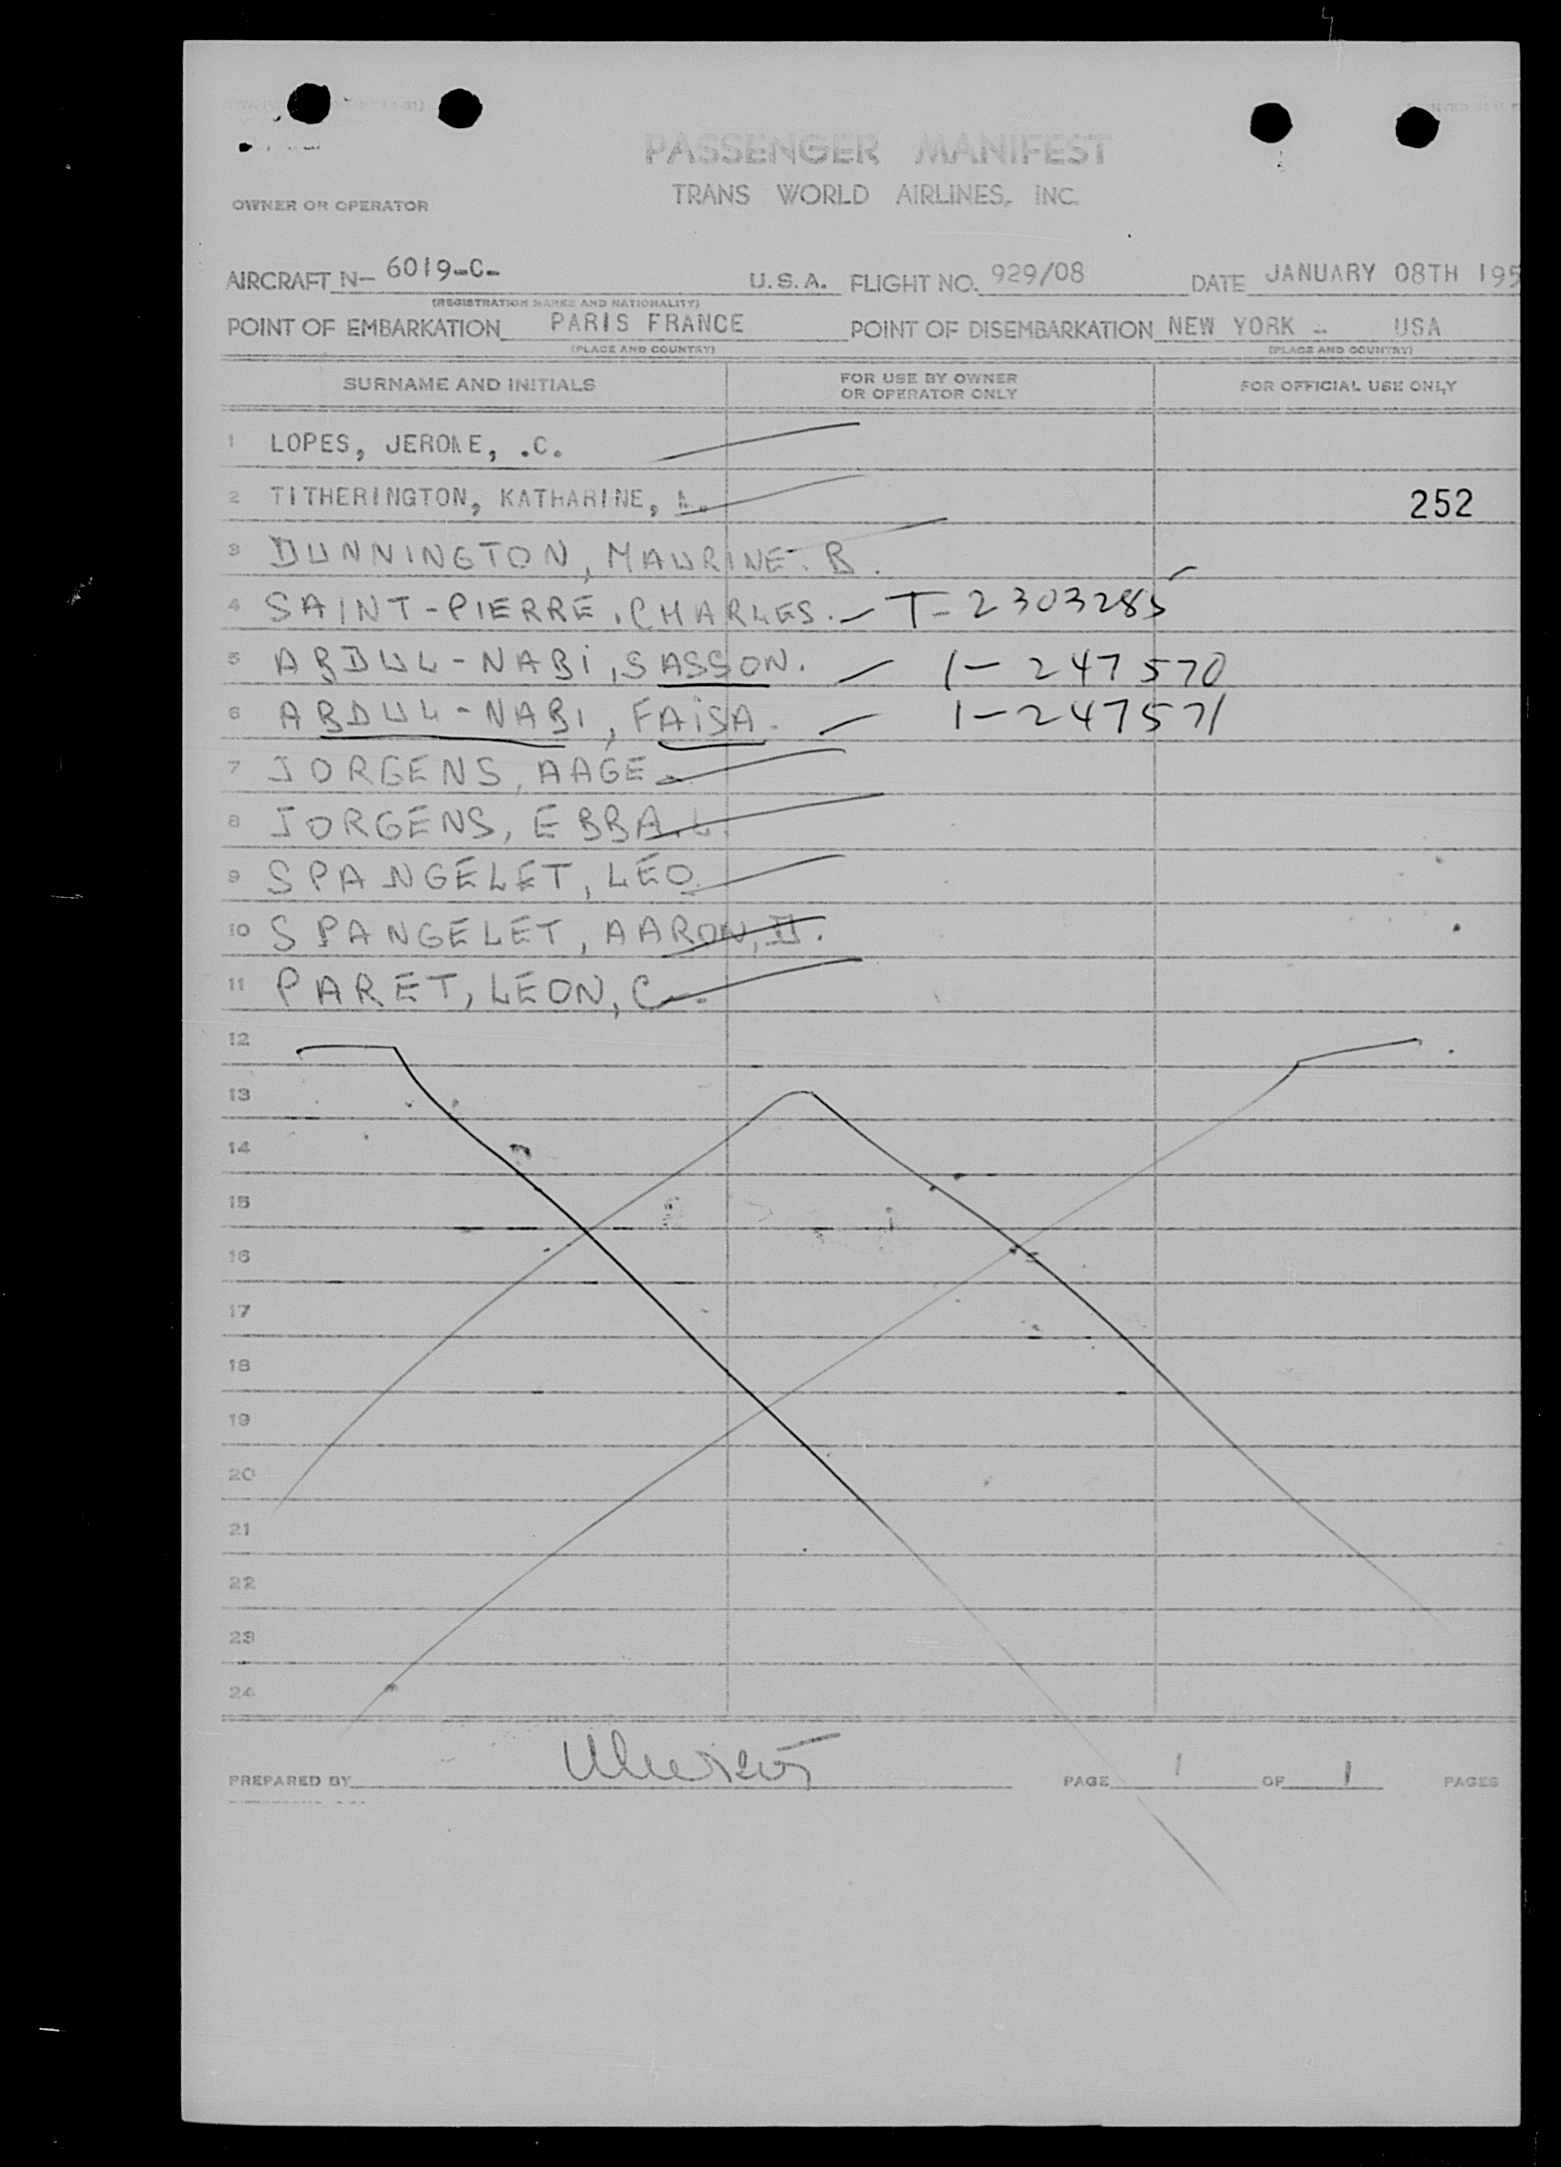 PASSENGER MANIFEST
TRANS WORLD AIRLINES, INC.
OWNER OR OPERATOR
AIRCRAFT N- 6019-C- U.S.A. FLIGHT NO. 929/08 DATE JANUARY 08TH 195
(REGISTRATION MARKS AND NATIONALITY)
POINT OF EMBARKATION PARIS FRANCE POINT OF DISEMBARKATION NEW YORK - USA
(PLACE AND COUNTRY) (PLACE AND COUNTRY)
SURNAME AND INITIALS FOR USE BY OWNER OR OPERATOR ONLY FOR OFFICIAL USE ONLY
1 LOPES, JEROME, .C.
2 TITHERINGTON, KATHARINE, 252
3 DUNNINGTON, MAURINE. B.
4 SAINT-PIERRE, CHARLES. - T-2303285
5 ABDUL-NABI, SASSON. - 1-247570
6 ABDUL-NABI, FAISA. - 1-247571
7 JORGENS, AAGE
8 JORGENS, EBBA. L.
9 SPANGELET, LEO.
10 SPANGELET, AARON, D.
11 PARET, LEON, C.
12
13
14
15
16
17
18
19
20
21
22
23
24
PREPARED BY PAGE 1 OF 1 PAGES